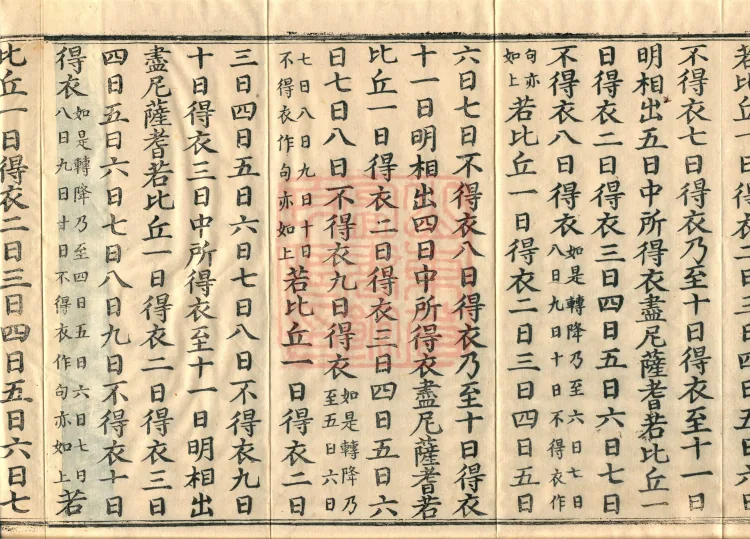 若比丘一日得衣二日三日四日五日六日
不得衣七日得衣乃至十日得衣至十一日
明相出五日中所得衣盡尼薩耆若比丘一
日得衣二日得衣三日四日五日六日七日
不得衣八日得衣如是轉降乃至六日七日八日九日十日不得衣作
句亦如上若比丘一日得衣二日三日四日五日
六日七日不得衣八日得衣乃至十日得衣
十一日明相出四日中所得衣盡尼薩耆若
比丘一日得衣二日得衣三日四日五日六
日七日八日不得衣九日得衣如是轉降乃至五日六日
七日八日九日十日不得衣作句亦如上若比丘一日得衣二日
三日四日五日六日七日八日不得衣九日
十日得衣三日中所得衣至十一日明相出
盡尼薩耆若比丘一日得衣二日得衣三日
四日五日六日七日八日九日不得衣十日
得衣如是轉降乃至四日五日六日七日八日九日十日不得衣作句亦如上若
比丘一日得衣二日三日四日五日六日七